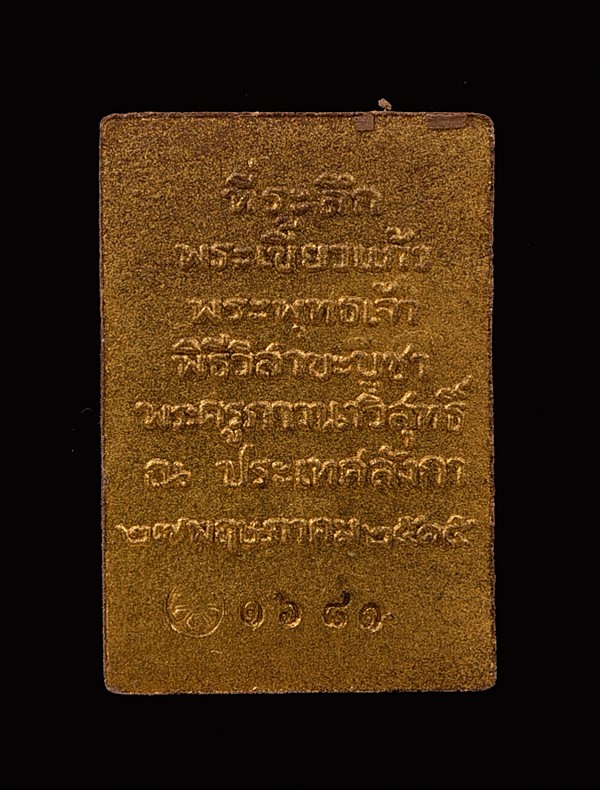 ที่ระลึก
พระเขี้ยวแก้ว
พระพุทธเจ้า
พิธีวิสาขะบูชา
พระครูภาวนาวิสุทธิ์
ณ ประเทศลังกา
๒๗ พฤษภาคม ๒๕๑๕
๑๖๘๑